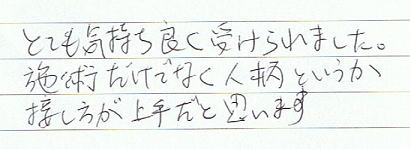 とても気持ち良く受けられました。
施術だけでなく人柄というか
接し方が上手だと思います